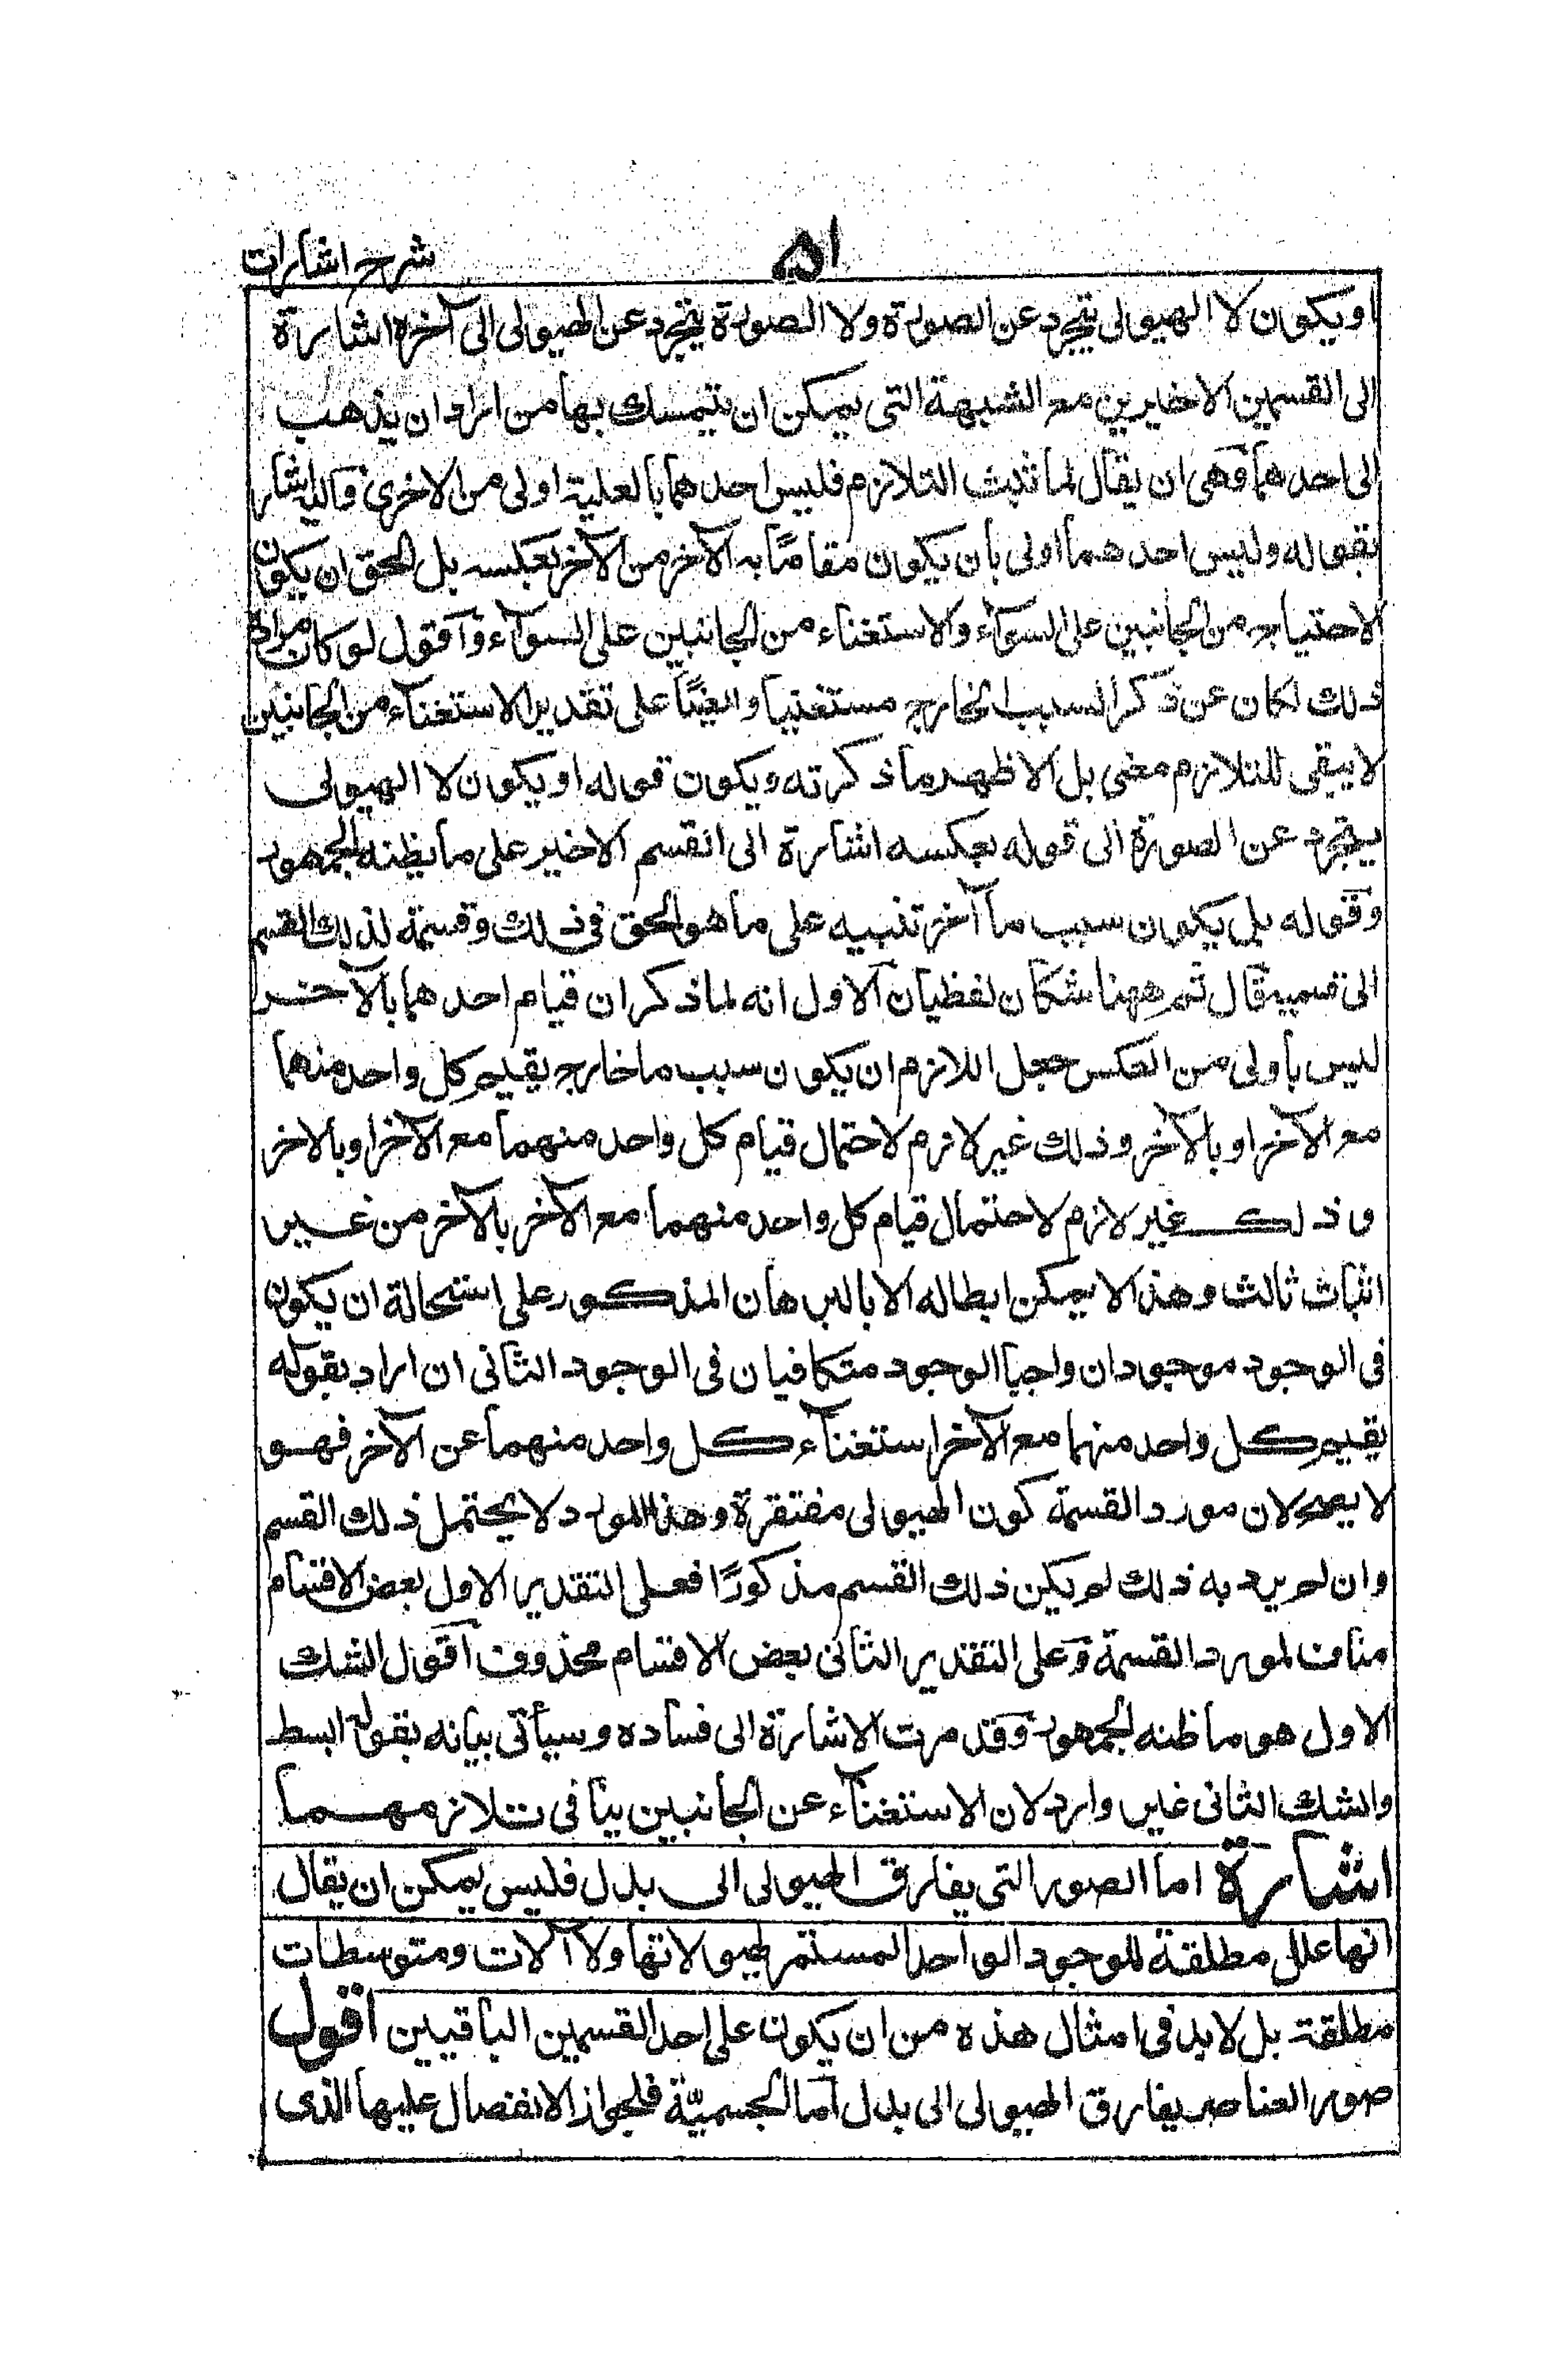 شرح اشارات
۵۱
او يكون لا الهيولى تتجرد عن الصورة ولا الصورة يتجرد عن الهيولى الى آخره اشارة
الى القسمين الاخيرين مع الشبهة التى يمكن ان يتمسك بها من اراد ان يذهب
الى احدهما وهى ان يقال لما ثبت التلازم فليس احدهما بالعلية اولى من الاخرى واليه اشار
بقوله وليس احدهما اولى بان يكون مقامًا به الآخر من الآخر بعكسه بل الحق ان يكون
الاحتياج من الجانبين على السوآء والاستغناء من الجانبين على السوآء وآقول لو كان مراده
ذلك لكان عن ذكر السبب الخارج مستغنيا وايضًا على تقدير الاستغنآء من الجانبين
لا يبقى للتلازم معنى بل الاظهر ما ذكرته ويكون قوله او يكون لا الهيولى
يتجرد عن الصورة الى قوله بعكسه اشارة الى القسم الاخير على ما يظنه الجمهور
وقوله بل يكون سبب ما آخر تنبيه على ما هو الحق فى ذلك وقسمة لذلك القسم
الى قسميه قال ثم ههنا شكان لفظيان الآول انه لما ذكر ان قيام احدهما بالآخر
ليس باولى من العكس جعل اللازم ان يكون سبب ما خارج يقيم كل واحد منهما
مع الآخر او بالآخر وذلك غير لازم لاحتمال قيام كل واحد منهما مع الآخر او بالاخر
و ذلك غير لازم لاحتمال قيام كل واحد منهما مع الآخر بالآخر من غير
اثبات ثالث وهذا لا يمكن ابطاله الا بالبرهان المذكور على استحالة ان يكون
فى الوجود موجودان واجبا الوجود متكافيان فى الوجود الثانى ان اراد بقوله
يقيم كل واحد منهما مع الآخر استغنآء كل واحد منهما عن الآخر فهو
لا يصح لان مورد القسمة كون الهيولى مفتقرة وهذا المورد لا يحتمل ذلك القسم
وان لم يرد به ذلك لم يكن ذلك القسم مذكورًا فعلى التقدير الاول بعض الاقسام
مناف لمورد القسمة وعلى التقدير الثانى بعض الاقسام محذوف آقول الشك
الاول هو ما ظنه الجمهور وقد مرت الاشارة الى فساده وسيأتى بيانه بقول ابسط
والشك الثانى غير وارد لان الاستغنآء عن الجانبين ينافى تلازمهما
اشارة اما الصور التى يفارق الهيولى الى بدل فليس يمكن ان يقال
انها علل مطلقة للوجود الواحد المستمر لهيولاتها ولا آلات ومتوسطات
مطلقة بل لابد فى امثال هذه من ان يكون على احد القسمين الباقيين اقول
صور العناصر يفارق الهيولى الى بدل آما الجسميّة فلجواز الانفصال عليها الذى